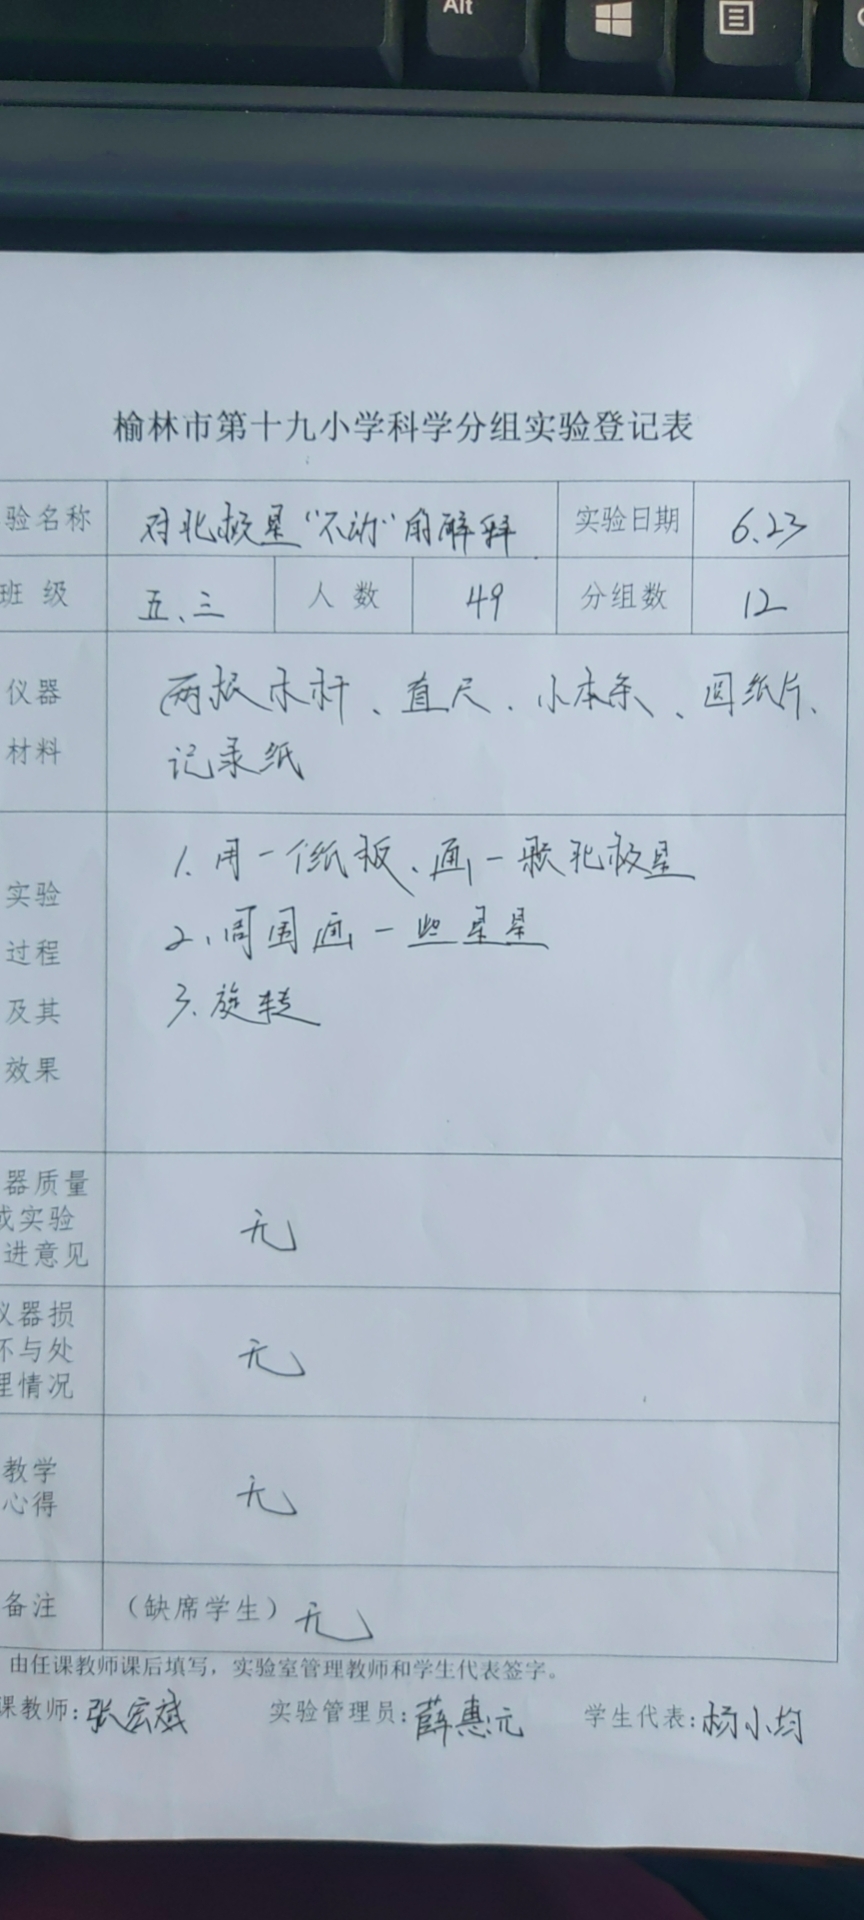 Alt
榆林市第十九小学科学分组实验登记表
验名称 对北极星“不动”的解释 实验日期 6.23
班 级 五、三 人 数 49 分组数 12
仪器 两根木杆、直尺、小木条、圆纸片、
材料 记录纸
1. 用一个纸板、画一颗北极星
实验
2、周围画一些星星
过程
3、旋转
及其
效果
器质量
或实验 无
进意见
仪器损
坏与处 无
理情况
教学 无
心得
备注 (缺席学生) 无
由任课教师课后填写，实验室管理教师和学生代表签字。
课教师: 张宏斌 实验管理员: 薛惠元 学生代表: 杨小均